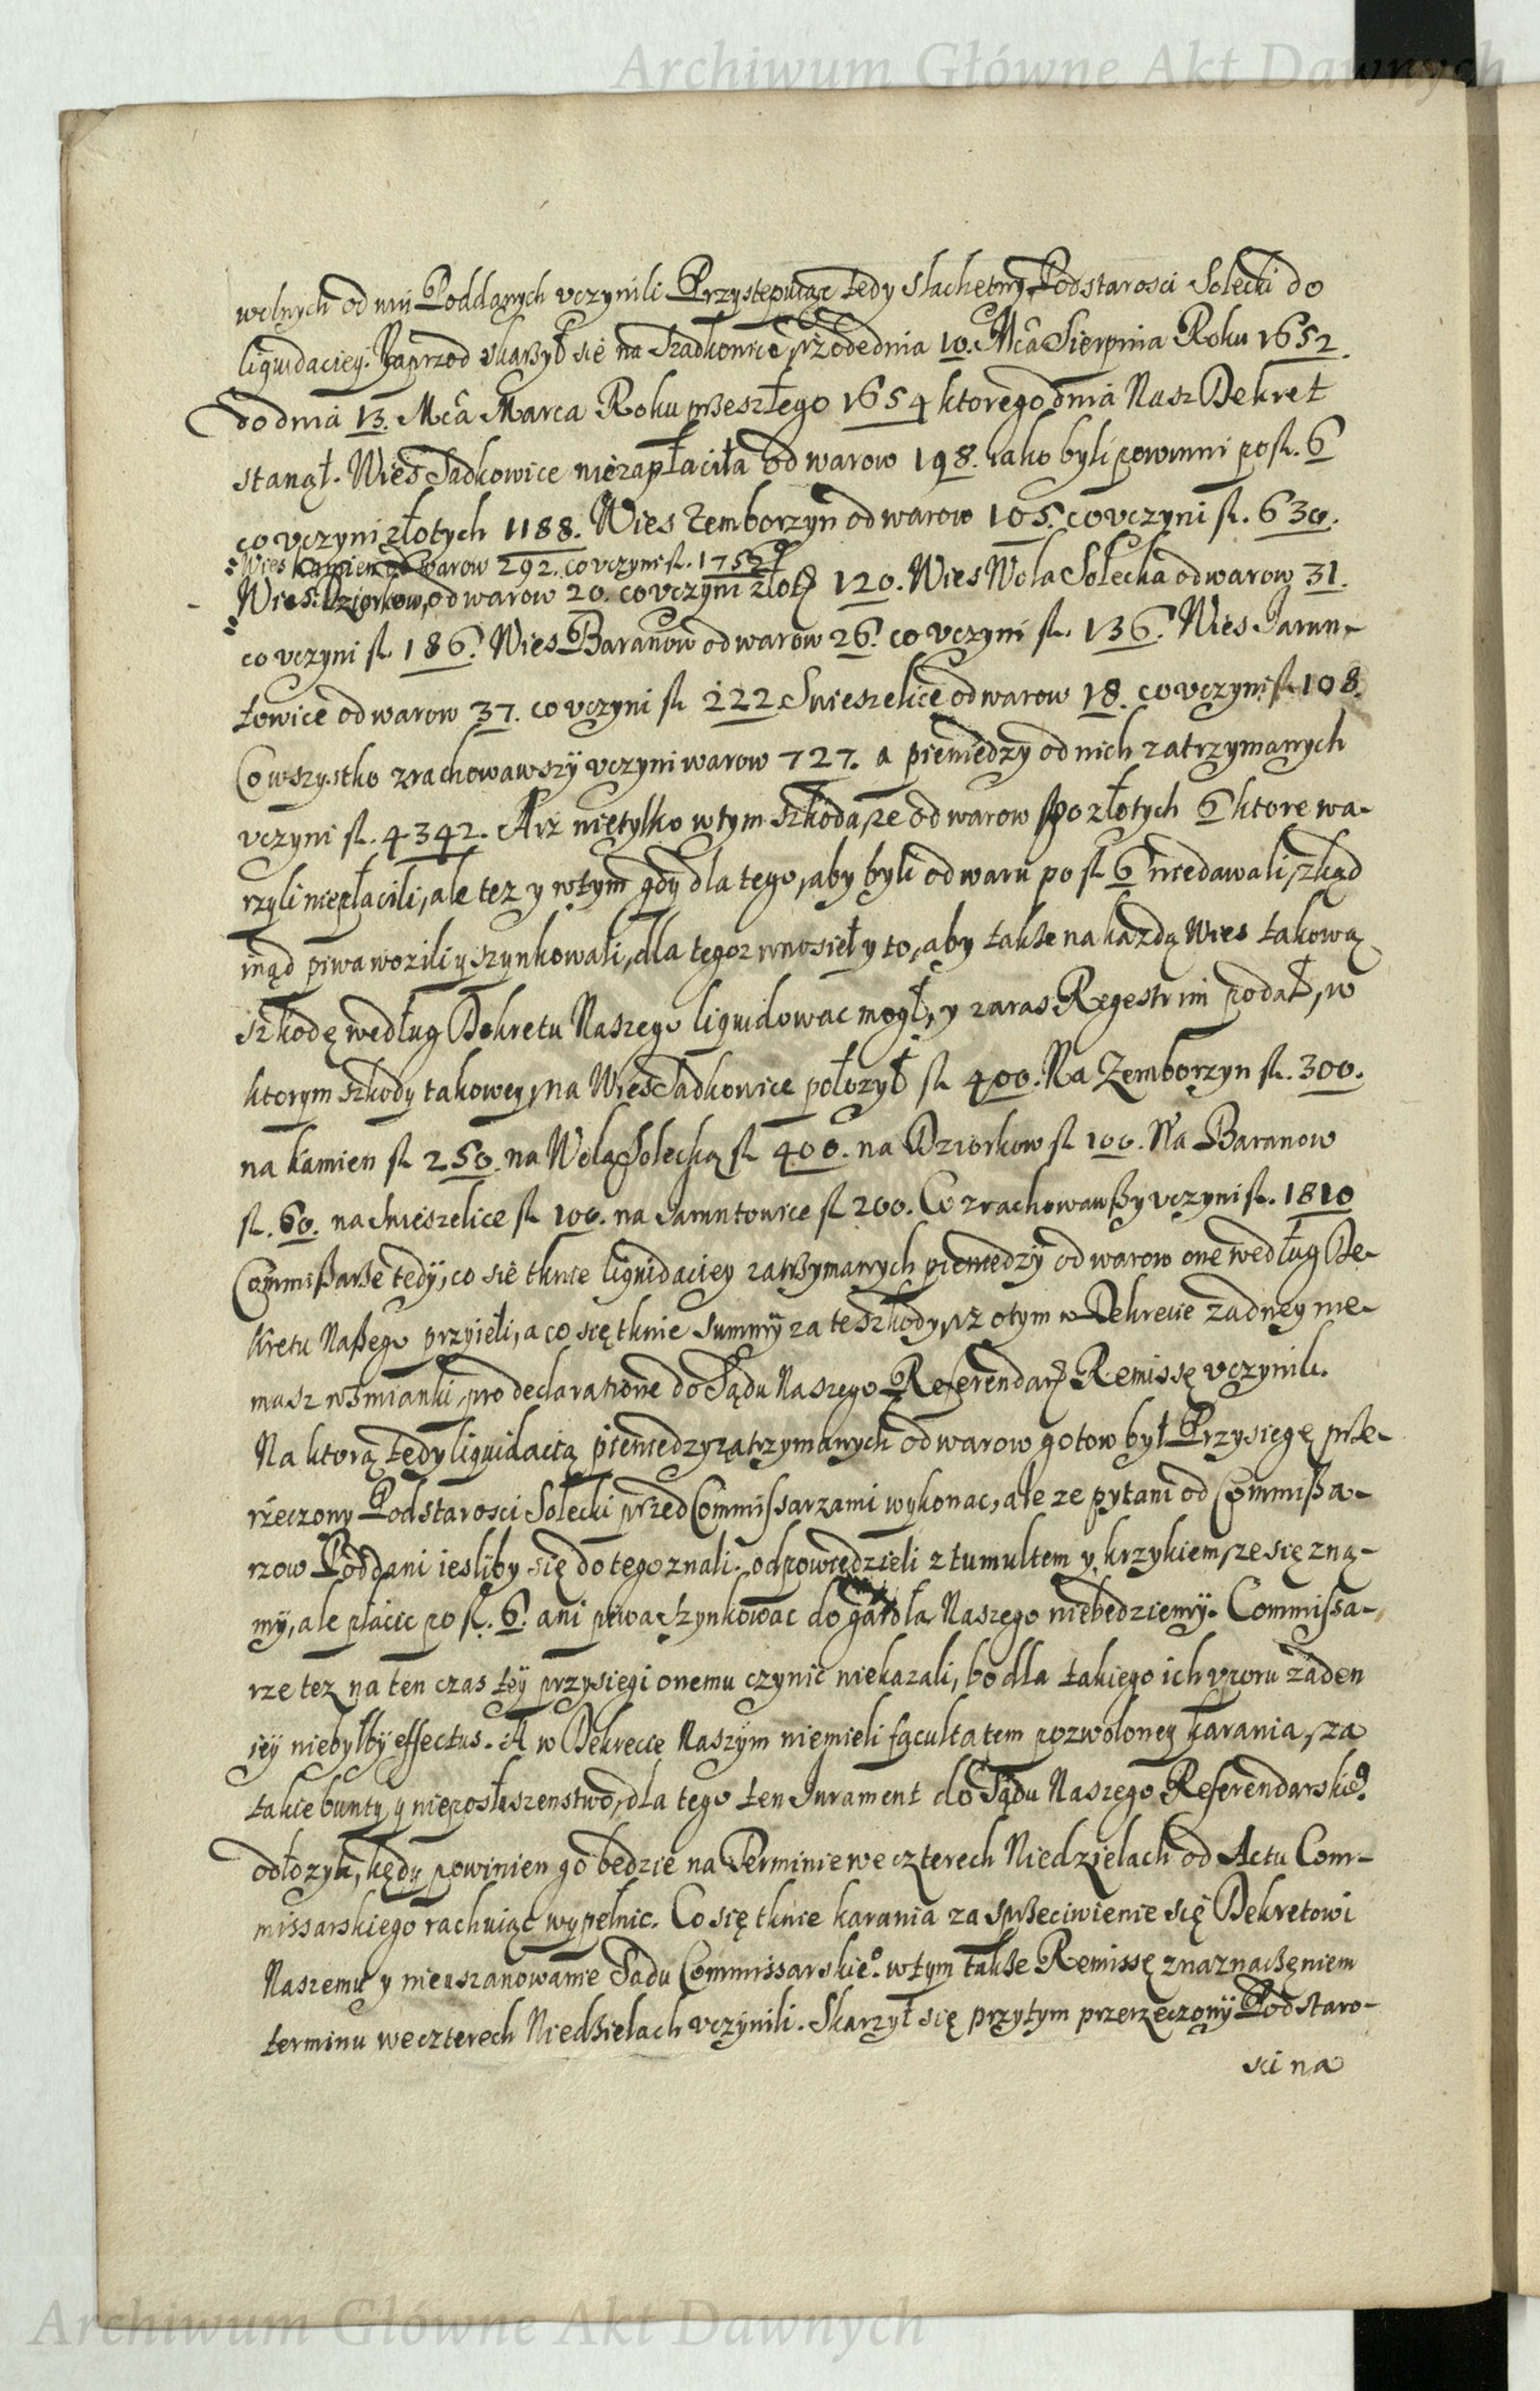 Archiwum Główne Akt Dawnych
wolnych od nui Poddanych vczynili Przystępuiąc tedy Slachetny Podstarosci Solecki do
liquidaciey. Naprzod skarżył się na Sadkowice, iż ode dnia 10. Mca Sierpnia Roku 1652.
do dnia 13. Mca Marca Roku przeszłego 1654 ktorego dnia Nasz Dekret
stanął. Wies Sadkowice niezapłaciła od warow 198. iako byli powinni po fl. 6
co vczyni złotych 1188. Wies Zemborzyn od warow 105. co vczyni fl. 630.
Wies Kamien od warow 292. co vczyni fl. 1752
Wies Dziorkow, od warow 20. co vczyni złot. 120. Wies Wola Solecka od warow 31.
co vczyni fl. 186. Wies Baranow od warow 26. co vczyni fl. 136. Wies Jarun-
towice od warow 37. co vczyni fl. 222. Snieszelice od warow 18. co vczyni fl. 108.
Co wszystko zrachowawszÿ vczyni warow 727. a pieniedzy od nich zatrzymanych
vczyni fl. 4342. A iż nietylko w tym szkoda, że od warow po złotych 6 ktore wa-
rzyli niepłacili, ale tez y w tym gdÿ dla tego, aby byli od waru po fl. 6 niedawali, zkąd
inąd piwa wozili y szynkowali, dla tegoz wnosieł y to, aby takze na kazdą Wies takową
szkodę według Dekretu Naszego liquidowac mogł, y zaras Regestrim podał, w
ktorym szkody takowey, na Wies Sadkowice połozył fl. 400. Na Zemborzyn fl. 300.
na Kamien fl. 250. na Wolą Solecką fl. 400. na Dziorkow fl. 100. Na Baranow
fl. 60. na Snieszelice fl. 100. na Jaruntowice fl. 200. Co zrachowawszy vczyni fl. 1810
Commissarze tedÿ, co sie tknie liquidaciey zatrzymanych pieniedzÿ od warow one według De-
kretu Naszego przyieli, a co się tknie summÿ za te szkody, iz o tym w Dekrecie zadney nie-
masz wzmianki, pro declaratione do Sądu Naszego Referendar. Remissę vczynili.
Na ktorą tedy liquidacią pieniedzy zatrzymanych od warow gotow był Przysięgę prze-
rzeczony Podstarosci Solecki przed Commissarzami wykonac, ale ze pytani od Commissa-
rzow Poddani iesliby się do tego znali. odpowiedzieli z tumultem y krzykiem, ze się zna-
mÿ, ale płacic po fl. 6. ani piwa szynkowac do gardła Naszego niebedziemÿ. Commissa-
rze tez na ten czas teÿ przysięgi onemu czynic niekazali, bo dla takiego ich vporu zaden
ieÿ niebyłbÿ effectus. A w Dekrecie Naszÿm niemieli facultatem pozwoloney karania, za
takie bunty y nieposłuszenstwo, dla tego ten Jurament do Sądu Naszego Referendarskieº.
odłozyli, kędy powinien go bedzie na Terminie we czterech Niedzielach od Actu Com-
missarskiego rachuiąc wypełnic. Co się tknie karania za sprzeciwienie się Dekretowi
Naszemu y nieuszanowanie Sadu Commissarskieº. w tym takze Remissę z naznaczeniem
terminu we czterech Niedzielach vczynili. Skarzył się przytym przerzeczonÿ Podstaro-
sci na
Archiwum Główne Akt Dawnych